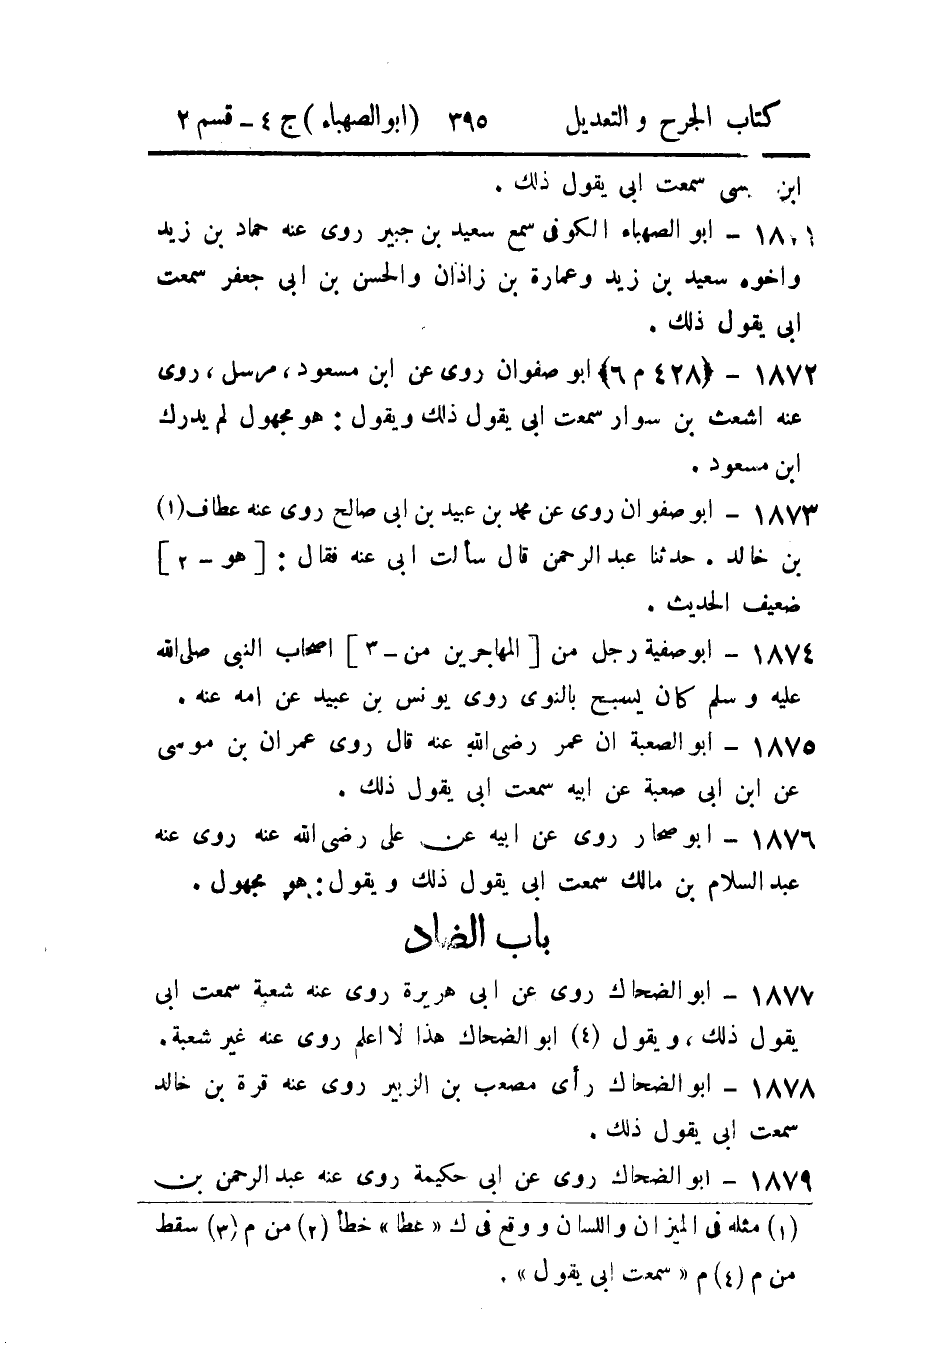 كتاب الجرح والتعديل ٣٩٥ (ابو الصهباء) ج ٤ - قسم ٢
ابن سمعت ابى يقول ذلك .
- ابو الصهباء الكوفى سمع سعيد بن جبير روى عنه حماد بن زيد
واخوه سعيد بن زيد وعمارة بن زاذان والحسن بن ابى جعفر سمعت
ابى يقول ذلك .
١٨٧٢ - {٤٢٨ م ٦} ابو صفوان روى عن ابن مسعود ، مرسل ، روى
عنه اشعث بن سوار سمعت ابى يقول ذلك ويقول : هو مجهول لم يدرك
ابن مسعود .
١٨٧٣ - ابو صفوان روى عن محمد بن عبيد بن ابى صالح روى عنه عطاف (١)
بن خالد . حدثنا عبد الرحمن قال سألت ابى عنه فقال : [ هو - ٢ ]
ضعيف الحديث .
١٨٧٤ - ابو صفية رجل من [ المهاجرين من - ٣ ] اصحاب النبى صلى الله
عليه وسلم كان يسبح بالنوى روى يونس بن عبيد عن امه عنه .
١٨٧٥ - ابو الصعبة ان عمر رضى الله عنه قال روى عمران بن موسى
عن ابن ابى صعبة عن ابيه سمعت ابى يقول ذلك .
١٨٧٦ - ابو صحار روى عن ابيه عن على رضى الله عنه روى عنه
عبد السلام بن مالك سمعت ابى يقول ذلك ويقول : هو مجهول .
باب الضاد
١٨٧٧ - ابو الضحاك روى عن ابى هريرة روى عنه شعبة سمعت ابى
يقول ذلك ، ويقول (٤) ابو الضحاك هذا لا اعلم روى عنه غير شعبة .
١٨٧٨ - ابو الضحاك رأى مصعب بن الزبير روى عنه قرة بن خالد
سمعت ابى يقول ذلك .
١٨٧٩ - ابو الضحاك روى عن ابى حكيمة روى عنه عبد الرحمن بن
(١) مثله فى الميزان واللسان ووقع فى ك « عطا » خطأ (٢) من م (٣) سقط
من م (٤) م « سمعت ابى يقول » .